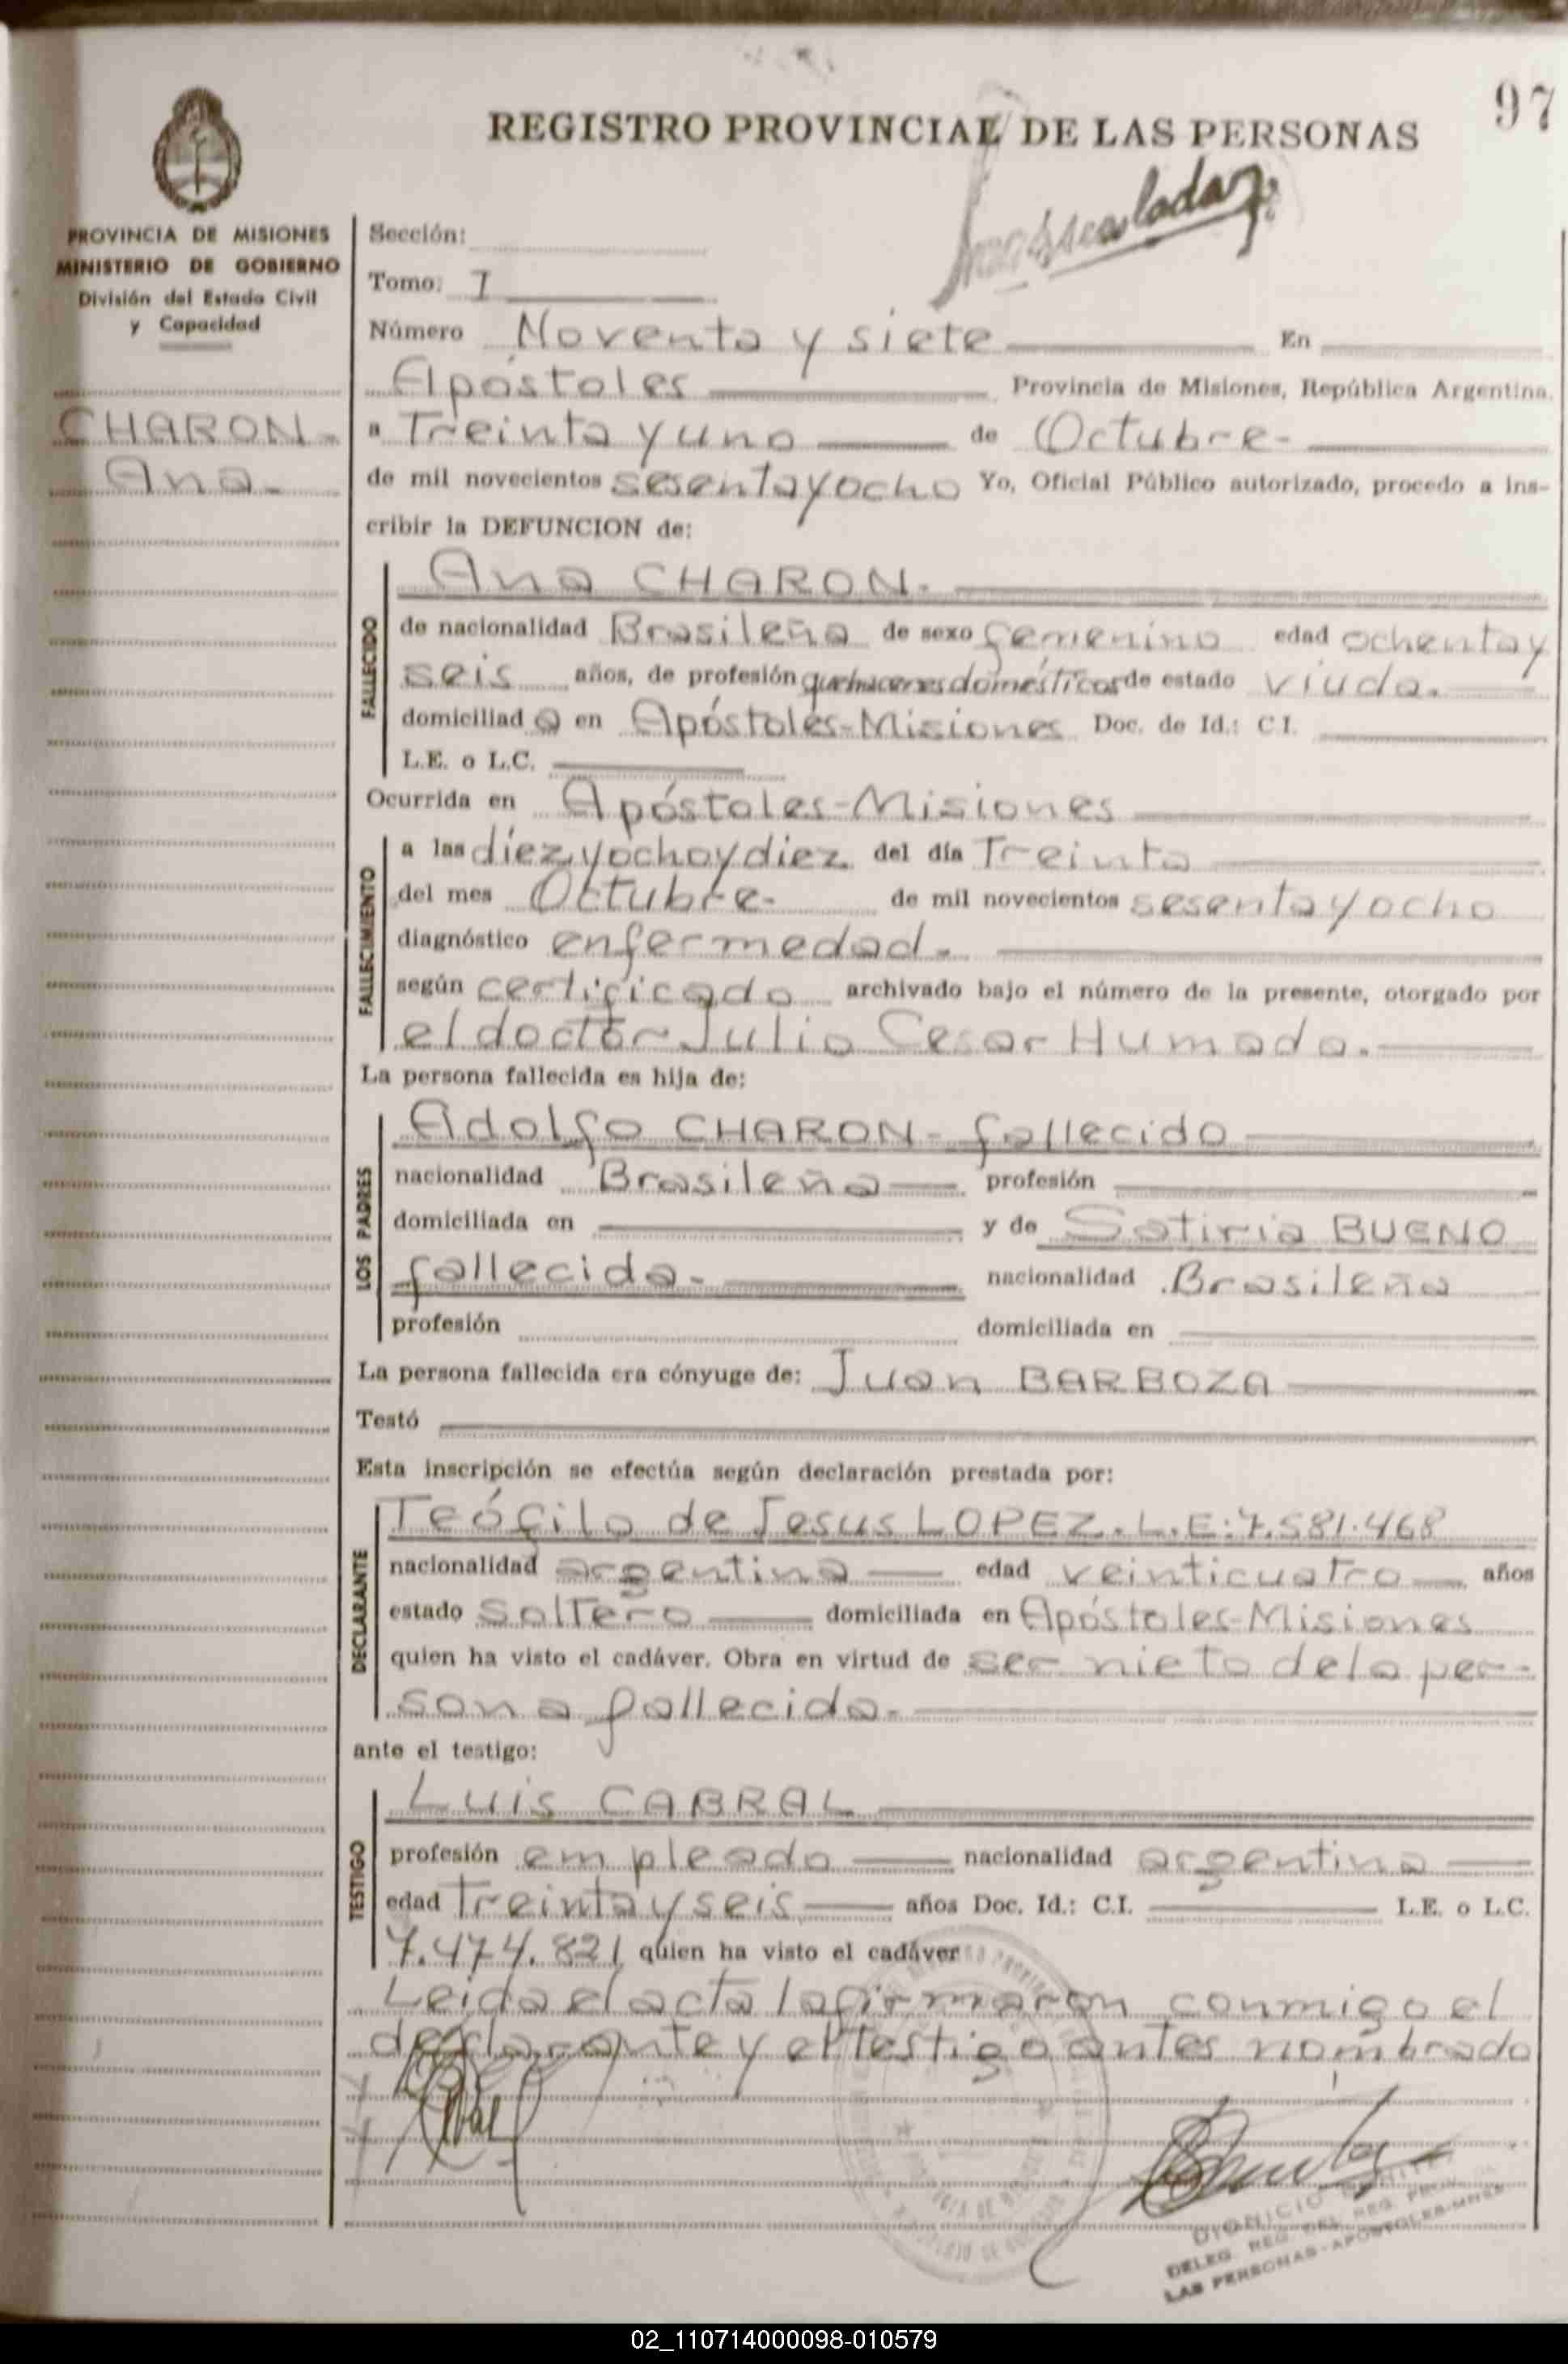 97
REGISTRO PROVINCIAL DE LAS PERSONAS
PROVINCIA DE MISIONES
MINISTERIO DE GOBIERNO
División del Estado Civil
y Capacidad
CHARON.-
Ana.-
Sección:
Tomo: I
Número Noventa y siete En
Apóstoles Provincia de Misiones, República Argentina.
a Treinta y uno de Octubre-
de mil novecientos sesenta y ocho Yo, Oficial Público autorizado, procedo a ins-
cribir la DEFUNCION de:
Ana CHARON.
FALLECIDO
de nacionalidad Brasileña de sexo femenino edad ochenta y
seis años, de profesión quehaceres domésticos de estado viuda.
domiciliad a en Apóstoles-Misiones Doc. de Id.: C.I.
L.E. o L.C.
Ocurrida en Apóstoles-Misiones
FALLECIMIENTO
a las diez y ocho y diez del día Treinta
del mes Octubre- de mil novecientos sesenta y ocho
diagnóstico enfermedad.
según certificado archivado bajo el número de la presente, otorgado por
el doctor Julio Cesar Humada.
La persona fallecida es hija de:
LOS PADRES
Adolfo CHARON- fallecido
nacionalidad Brasileña profesión
domiciliada en y de Satiria BUENO
fallecida- nacionalidad Brasileña
profesión domiciliada en
La persona fallecida era cónyuge de: Juan BARBOZA
Testó
Esta inscripción se efectúa según declaración prestada por:
DECLARANTE
Teófilo de Jesus LOPEZ. L.E: 7.581.468
nacionalidad argentina edad veinticuatro años
estado Soltero domiciliada en Apóstoles-Misiones
quien ha visto el cadáver. Obra en virtud de ser nieto de la per-
sona fallecida.
ante el testigo:
TESTIGO
Luis CABRAL
profesión empleado nacionalidad argentina
edad Treinta y seis años Doc. Id.: C.I. L.E. o L.C.
7.474.821 quien ha visto el cadáver
Leida el acta la firmaron conmigo el
declarante y el testigo antes nombrado
DIONICIO
DELEG. REG. DEL REG. PROV. DE
LAS PERSONAS-APOSTOLES-MNES
02_110714000098-010579